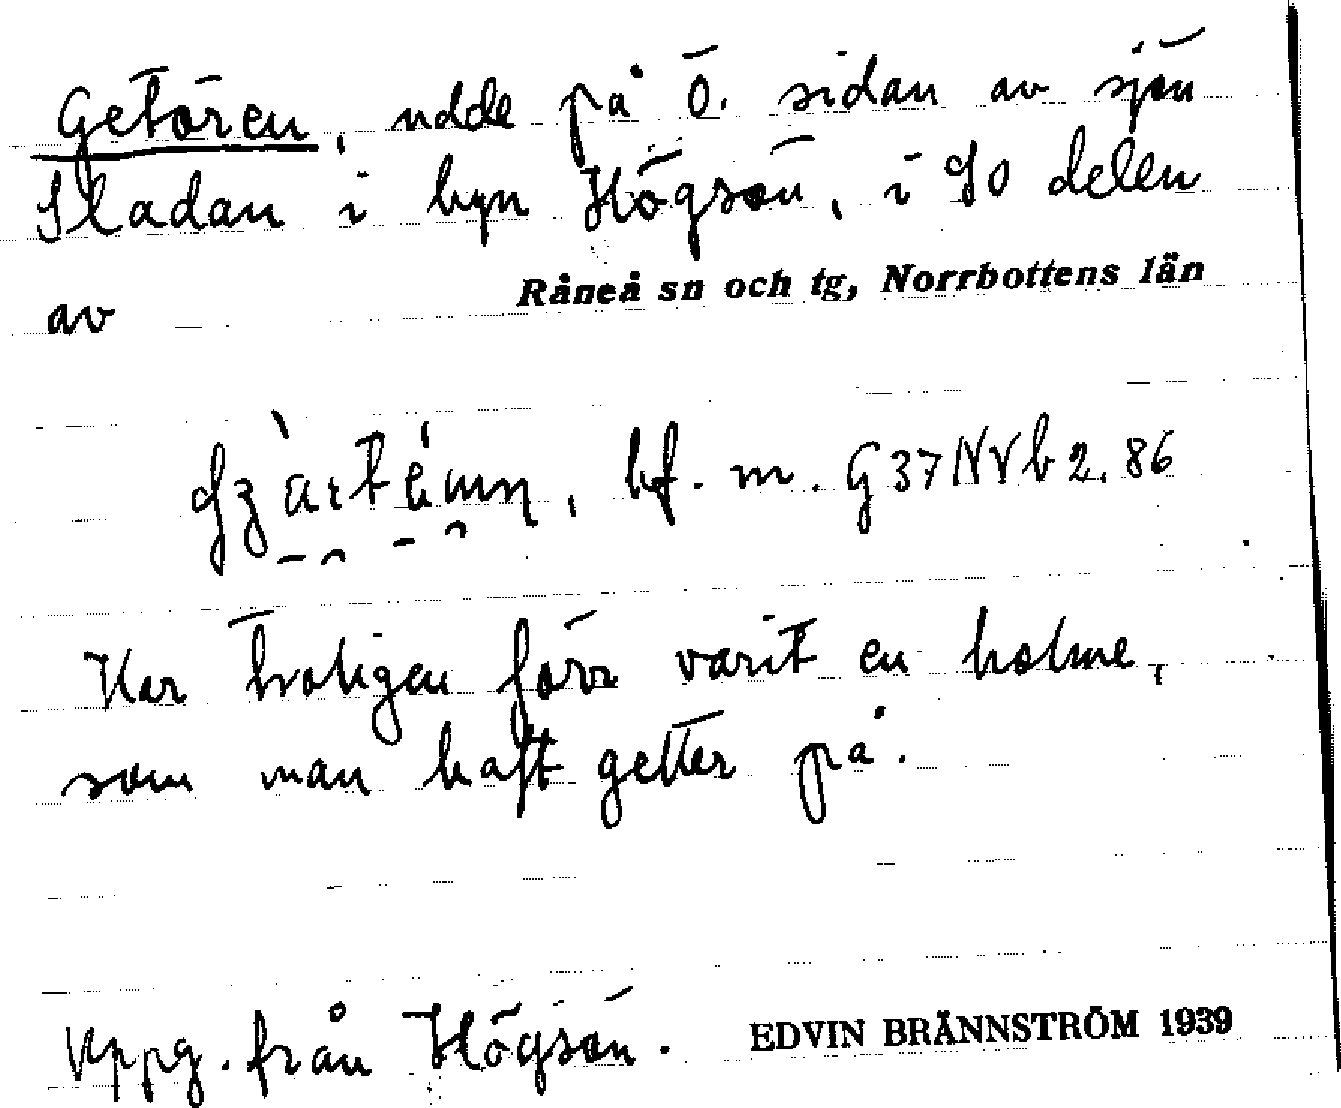 Getören, udde på ö. sidan av sjön
Sladan i byn Högsön, i SO delen
av Råneå sn och tg, Norrbottens län
bf. m. G37NVb2.86
Har troligen förr varit en holme,
som man haft getter på.
Uppg. från Högsön. EDVIN BRÄNNSTRÖM 1939